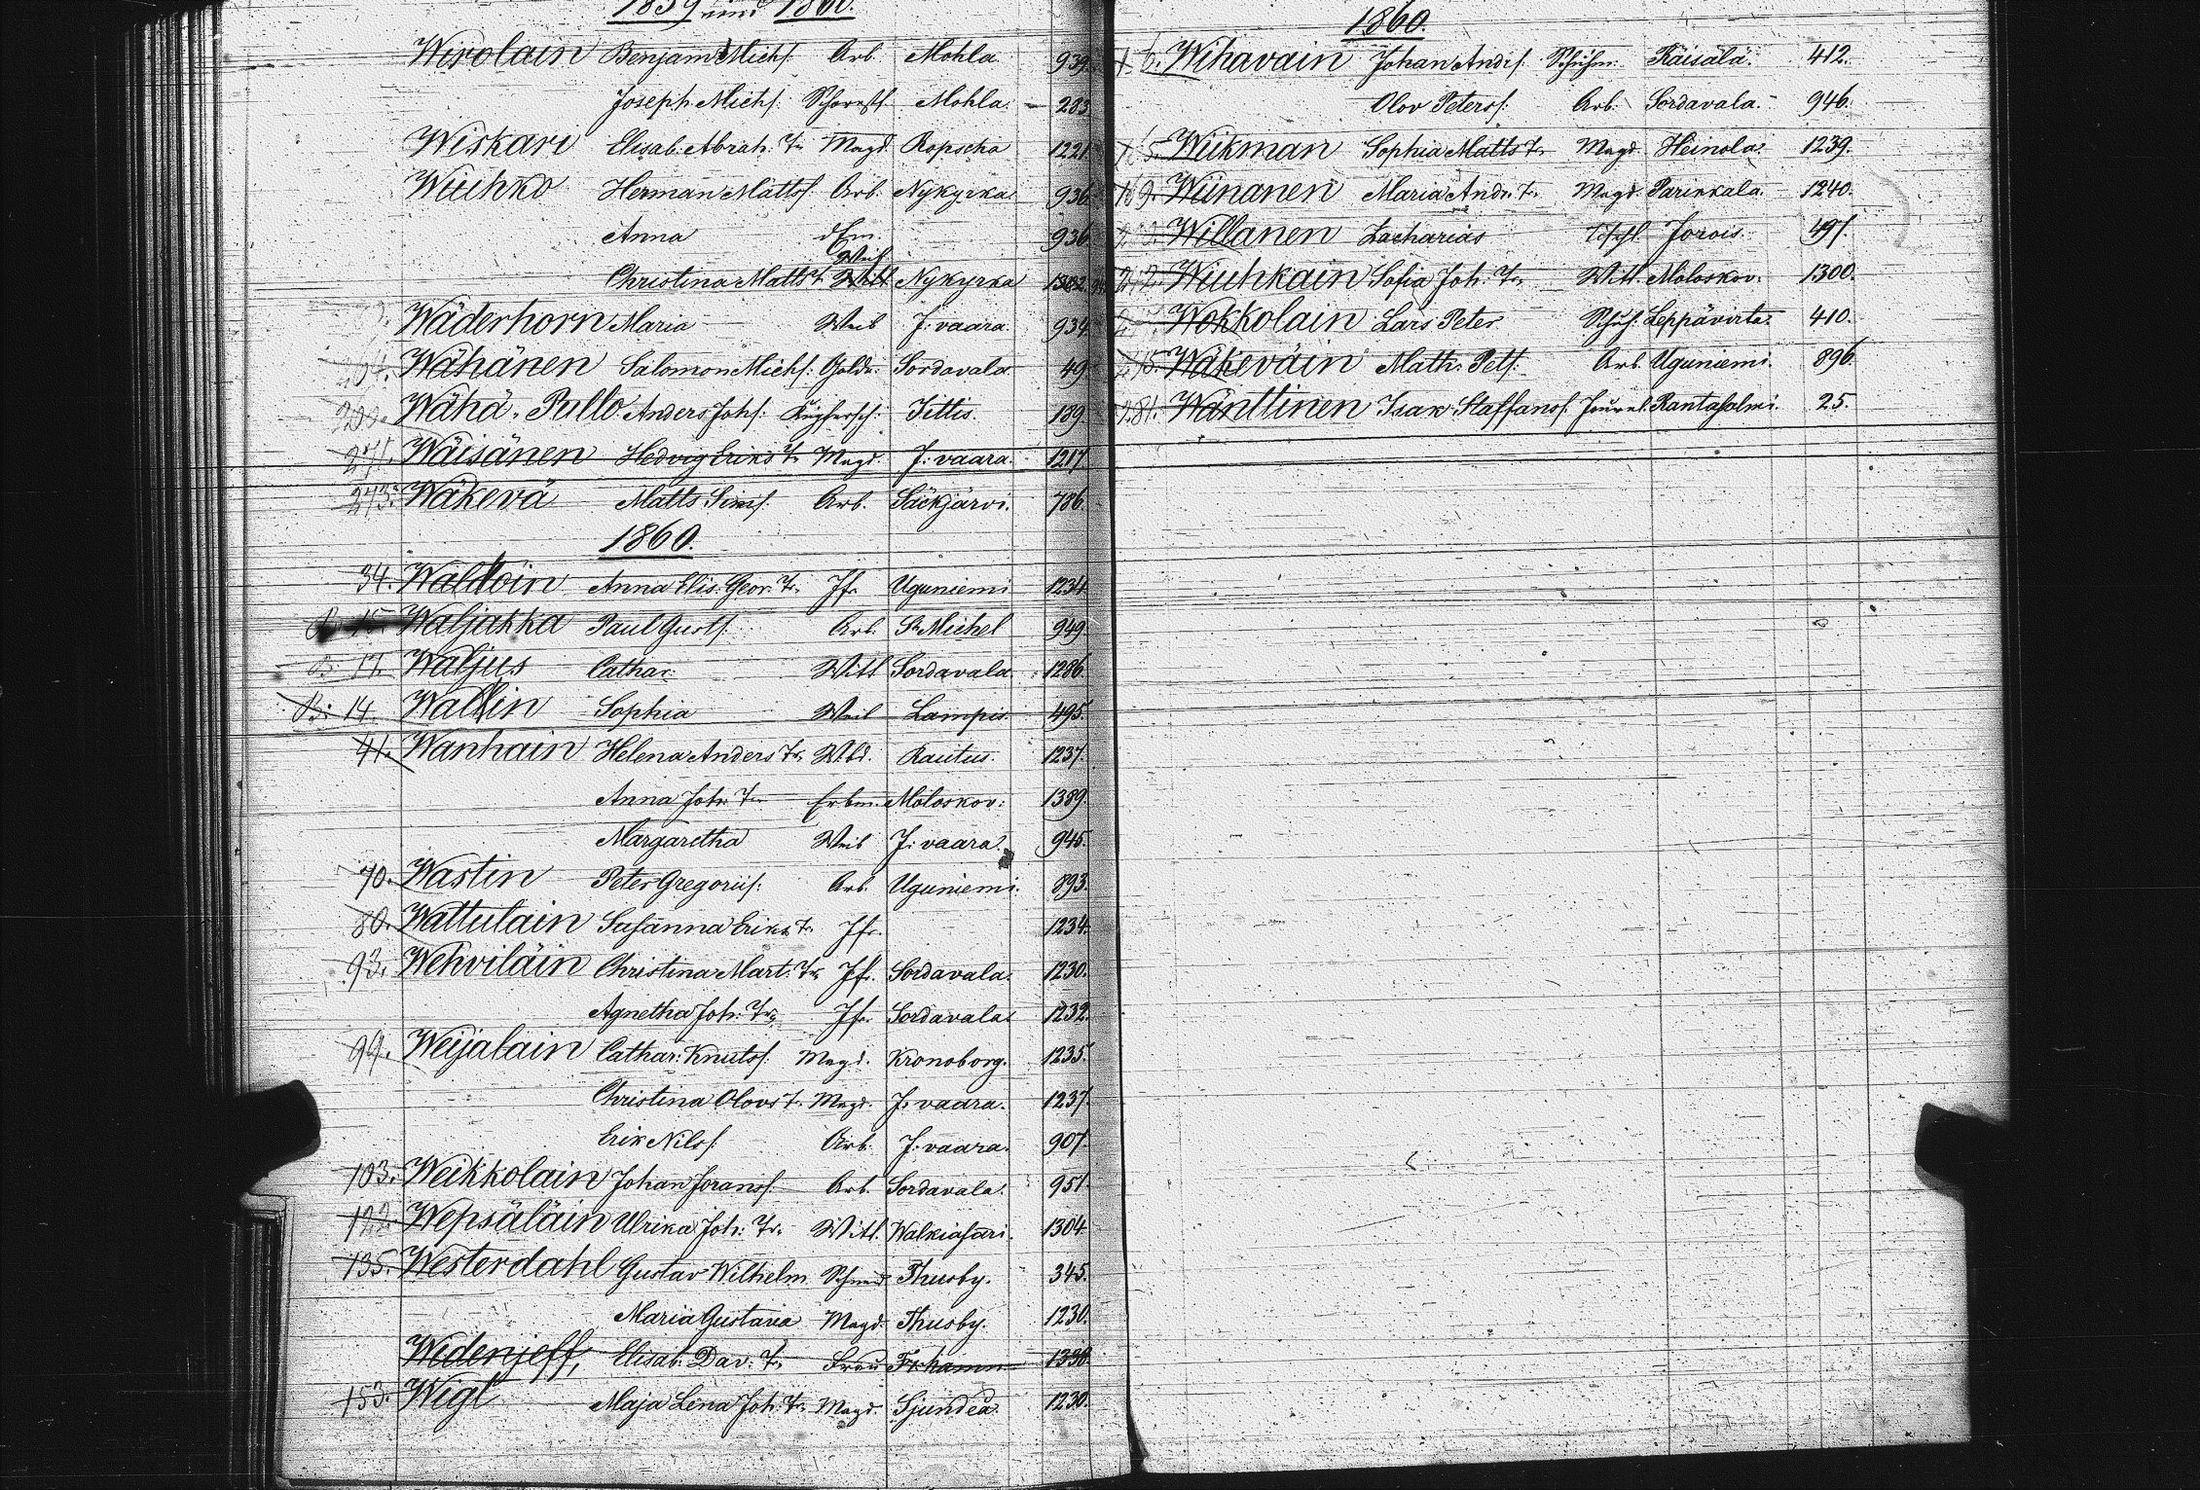 1859 und 1860.
Wirolain Benjam Michs. Arb. Mohla 939.
Joseph Michs. Schornst Mohla. 283
Wiskari Elisab. Abrah. Tr. Magd. Ropscha 1221.
Wiuhko Herman Matts. Arb. Nykyrka 936.
Anna dEm. 936.
Weib
Christina Matts T. Nykyrka
Wäderhorn Maria Weib J: vaara. 934
264. Wähänen Salomon Michs. Golda. Sordavala 49
Wähä-Pullo Anders Johs. Kupfersch. Jittis. 189.
271. Wäisänen Hedvig Eriks T. Magd. J: vaara. 1217
273. Wäkevä Matts Sims. Arb. Säkjärvi. 786.
1860.
34. Anna Elis: Geor. Tr. Jfr Uguniemi 1234
15. Waljakka Paul Gusts. Arb. St Michel 949.
B. 17. Waljus Cathar. Witt Sordavala 1286.
B: 14. Wallin Sophia Weib Lampis. 495.
41. Wanhain Helena Anders Tr. Wbd. Rautus. 1237.
Anna Joh: Tr. Erbm. Moloskov: 1389.
Margaretha Weib J: vaara. 945.
70. Wastin Peter Gregoriis: Arb. Uguniemi. 893.
80. Wattulain Susanna Eriks T. Jfr. 1234.
93. Wehviläin Christina Mart. Tr. Jfr. Sordavala. 1230.
Agnetha Joh: Tr. Jfr. Sordavala. 1232.
94. Weijalain Cathar: Knuts: Magd. Kronoborg. 1235.
Christina Olovs T. Magd. J: vaara. 1237.
Erik Nils. Arb. J: vaara. 907.
103. Weikkolain Johan Jorans. Arb. Sordavala. 951.
122. Wepsäläin Ulrika Joh: Tr. Witt. Walkiasari. 1304.
135. Westerdahl Gustav Wilhelm Schneid Thusby. 345.
Maria Gustava Magd. Thusby. 1230.
Widenjeff, Elisab. Dav: Tr. Frau Fr.hamn 1338.
153. Wigl Maja Lena Joh: Tr. Magd. Sjundeå. 1230.
1860.
Wihavain Johan Andrs. Schuhm. Räisälä. 412.
Olov Peters. Arb. Sordavala. 946.
Wiikman Sophia Matts Tr. Magd. Heinola. 1239.
169. Wiinanen Maria Andr. Tr. Magd. Parikkala. 1240.
Willanen Zacharias Tischl. Jorois. 497.
212. Wiuhkain Sofia Joh: Tr. Witt. Moloskov. 1300.
Wokkolain Lars Peter Schuh: Leppävirta. 410.
Wäkeväin Math: Pets: Arb. Uguniemi. 896.
281. Wänttinen Isak Staffans. Jouvel. Rantasalmi. 25.